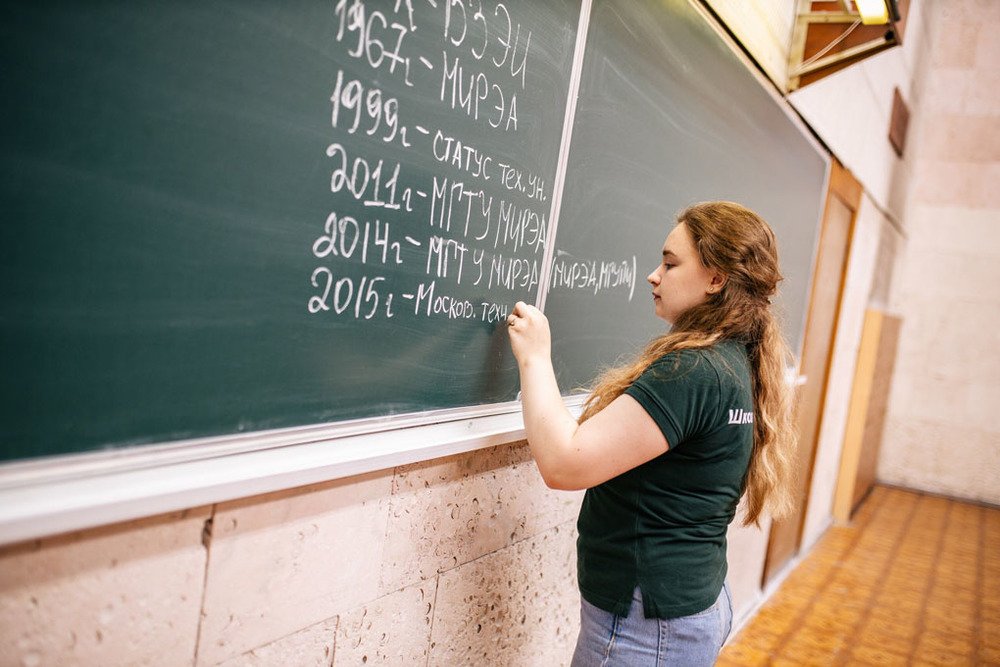 г. - ВЗЭИ
1967г. - МИРЭА
1999г - статус тех. ун.
2011г - МГТУ МИРЭА
2014г - МГТУ МИРЭА (МИРЭА, МГУПИ)
2015г - Москов. техн
Шко